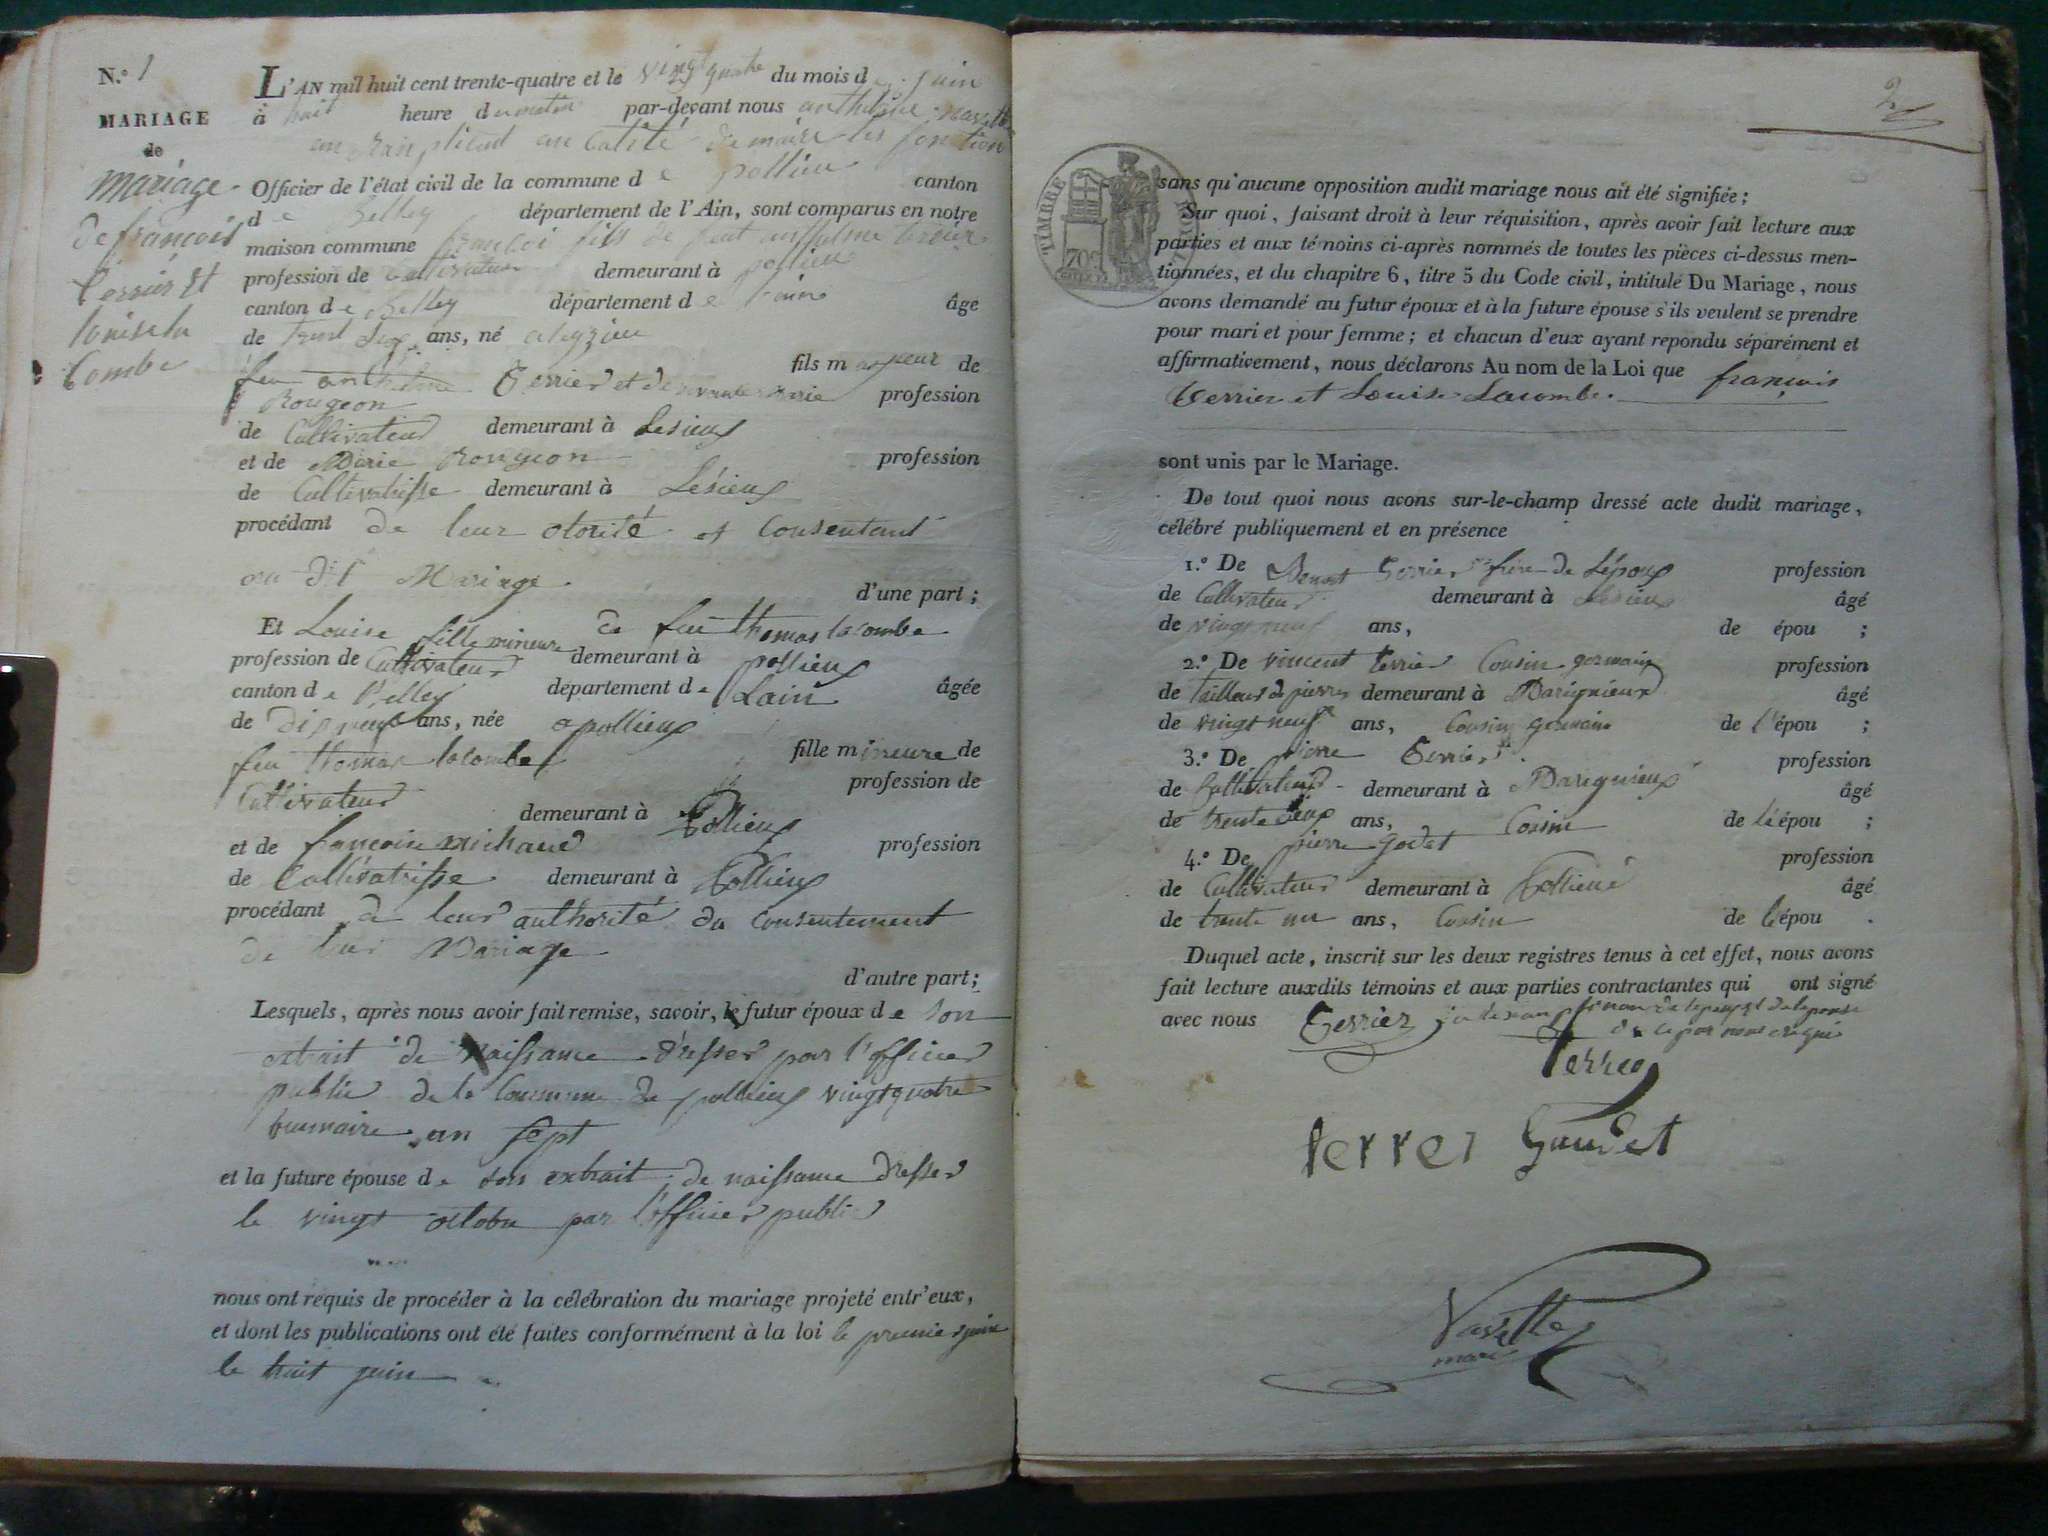 N.o 1
MARIAGE
de
Mariage
de françois
terrier et
louise la
Combe
L'AN mil huit cent trente-quatre et le vingt quatre du mois de juin
à huit heure du matin par-devant nous anthelme
en calité de maire les fonction
Officier de l'état civil de la commune de pollieu canton
de Belley département de l'Ain, sont comparus en notre
maison commune françoi fils de feut anthelme terrier
profession de Cultivateur demeurant à pollieu
canton de Belley département de l'ain âge
de ans, né
fils majeur de
feu anthelme Terrier et de marie profession
Rougeon
de Cultivateur demeurant à Lesieux
et de Marie Rougeon profession
de Cultivatrisse demeurant à Lésieux
procédant de leur otorité et Consentant
au dit Mariage
d'une part ;
Et Louise fille mineure de feu thomas lacombe
profession de Cultivateur demeurant à pollieux
canton de Belley département de Lain âgée
de dix neuf ans, née a pollieux
fille mineure de
feu thomas lacombe
profession de
Cultivateur
demeurant à Pollieux
et de françoise michaud profession
de Cultivatrisse demeurant à Pollieux
procédant de leur authorité du Consentement
de leur Mariage
d'autre part ;
Lesquels, après nous avoir fait remise, savoir, le futur époux de son
extrait de naissance dresser par l'officier
public de la Commune de pollieux vingt quatre
brumaire an sept
et la future épouse de son extrait de naissance dresser
le vingt octobre par l'officier public
nous ont requis de procéder à la célébration du mariage projeté entr'eux,
et dont les publications ont été faites conformément à la loi le premier juin
le huit juin
2
TIMBRE ROYAL
70c
sans qu'aucune opposition audit mariage nous ait été signifiée ;
Sur quoi, faisant droit à leur réquisition, après avoir fait lecture aux
parties et aux témoins ci-après nommés de toutes les pièces ci-dessus men-
tionnées, et du chapitre 6, titre 5 du Code civil, intitulé Du Mariage, nous
avons demandé au futur époux et à la future épouse s'ils veulent se prendre
pour mari et pour femme ; et chacun d'eux ayant repondu séparément et
affirmativement, nous déclarons Au nom de la Loi que françois
Terrier et Louise Lacombe.
sont unis par le Mariage.
De tout quoi nous avons sur-le-champ dressé acte dudit mariage,
célébré publiquement et en présence
1.o De Benoit Terrier frère de Lépoux profession
de Cultivateur demeurant à Lésieux âgé
de vingt neuf ans, de épou ;
2.o De vincent terrier Cousin germain profession
de tailleur de pierres demeurant à Marignieux âgé
de vingt neuf ans, Cousin germain de l'épou ;
3.o De pierre Terrier profession
de Cultivateur demeurant à Marignieux âgé
de trente deux ans, Cousin de l'épou ;
4.o De pierre godet profession
de Cultivateur demeurant à Pollieux âgé
de trente un ans, Cousin de l'épou .
Duquel acte, inscrit sur les deux registres tenus à cet effet, nous avons
fait lecture auxdits témoins et aux parties contractantes qui ont signé
avec nous Terrier
terrier
terrer Gaudet
maire